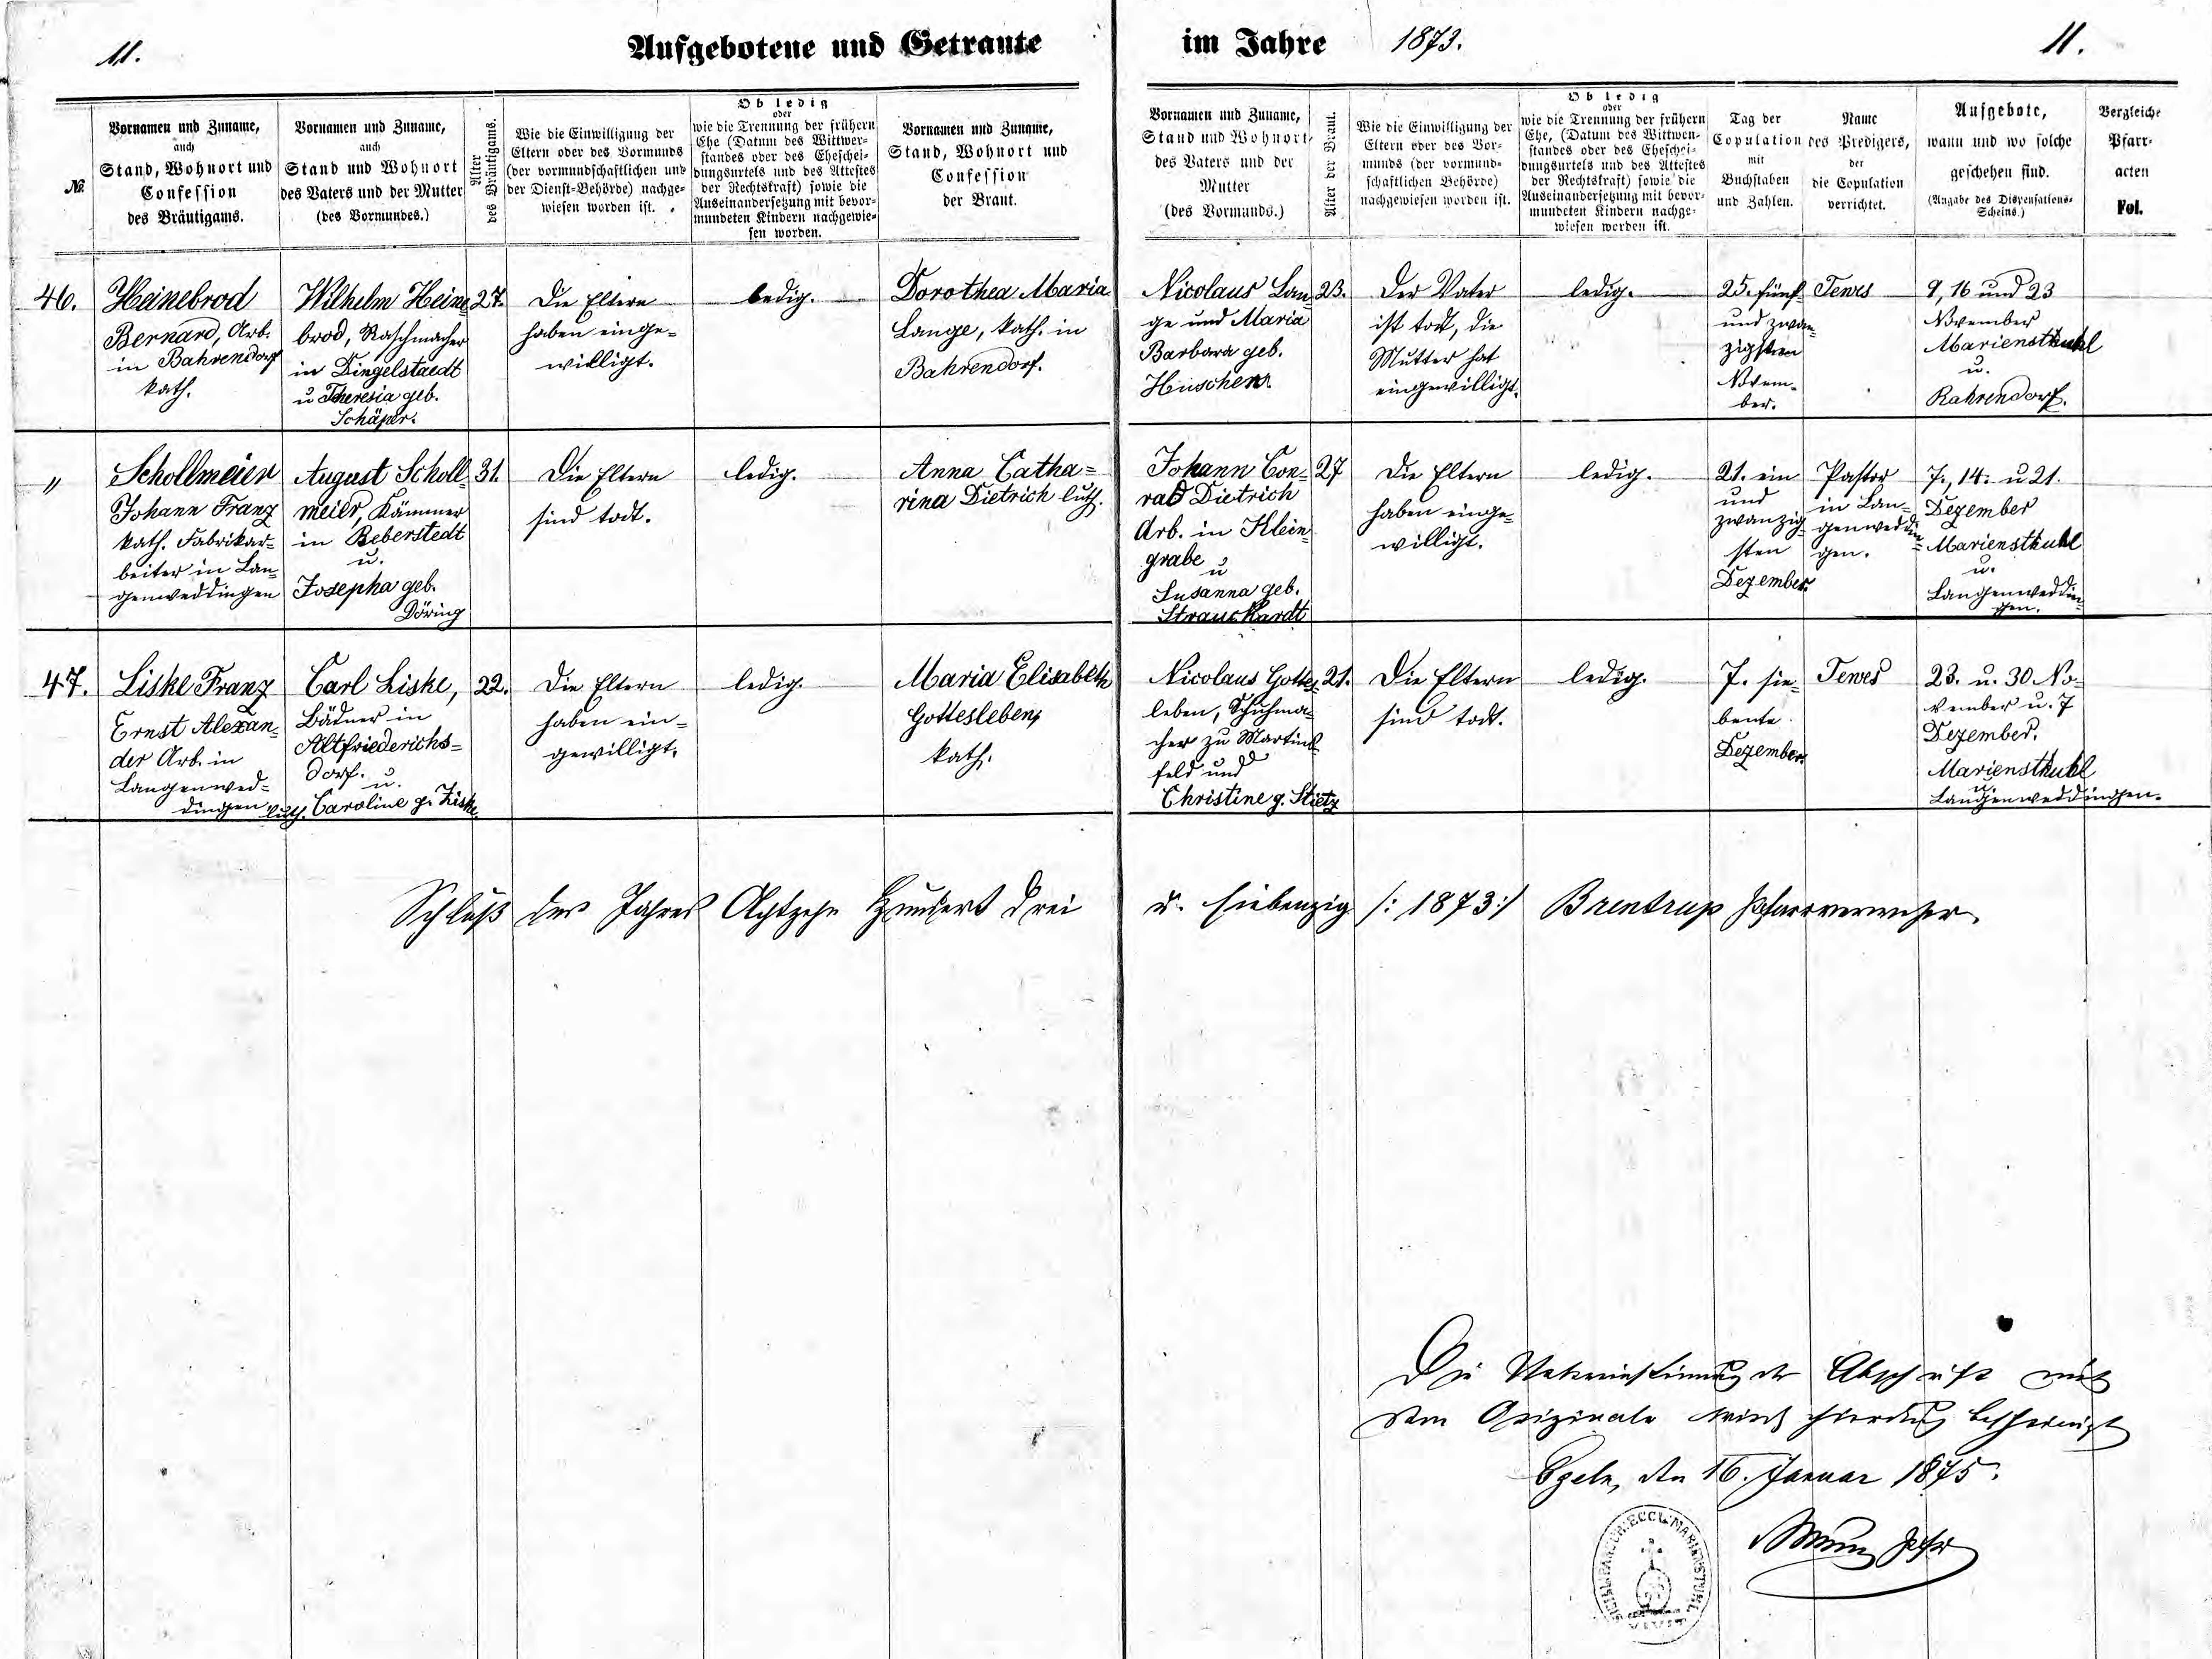 11.
Aufgebotene und Getraute im Jahre 1873.
11.
№
Vornamen und Zuname,
auch
Stand, Wohnort und
Confession
des Bräutigams.
Vornamen und Zuname,
auch
Stand und Wohnort
des Vaters und der Mutter
(des Vormundes.)
Alter
des Bräutigams.
Wie die Einwilligung der
Eltern oder des Vormunds
(der vormundschaftlichen und
der Dienst-Behörde) nachge-
wiesen worden ist.
Ob ledig
oder
wie die Trennung der frühern
Ehe (Datum des Wittwer-
standes oder des Ehescheі-
dungsurtels und des Attestes
der Rechtskraft) sowie die
Auseinandersetzung mit bevor-
mundeten Kindern nachgewie-
sen worden.
Vornamen und Zuname,
Stand, Wohnort und
Confession
der Braut.
Vornamen und Zuname,
Stand und Wohnort
des Vaters und der
Mutter
(des Vormunds.)
Alter der Braut.
Wie die Einwilligung der
Eltern oder des Vor-
munds (der vormund-
schaftlichen Behörde)
nachgewiesen worden ist.
Ob ledig
oder
wie die Trennung der frühern
Ehe, (Datum des Wittwen-
standes oder des Eheschei-
dungsurtels und des Attestes
der Rechtskraft) sowie die
Auseinandersetzung mit bevor-
mundeten Kindern nachge-
wiesen worden ist.
Tag der
Copulation
mit
Buchstaben
und Zahlen.
Name
des Predigers,
der
die Copulation
verrichtet.
Aufgebote,
wann und wo solche
geschehen sind.
(Angabe des Dispensations-
Scheins.)
Vergleiche
Pfarr-
acten
Vol.
46.
Heinebrod
Bernard, Arb.
in Bahrendorf
kath.
Wilhelm Heine-
brod, Raschmacher
in Dingelstaedt
u Theresia geb.
Schäper.
27.
Die Eltern
haben einge-
willigt.
ledig.
Dorothea Maria
Lange, kath. in
Bahrendorf.
Nicolaus Lan-
ge und Maria
Barbara geb.
23.
Der Vater
ist todt, die
Mutter hat
eingewilligt.
ledig.
25. fünf
und zwan-
zigsten
Novem-
ber.
Tewes
9, 16 und 23
November
Marienstuhl
u.
Bahrendorf.
"
Schollmeier
Johann Franz
kath. Fabrikar-
beiter in Lan-
genweddingen
August Scholl-
meier, Kämmer
in Beberstedt
u.
Josepha geb.
Döring
31.
Die Eltern
sind todt.
ledig.
Anna Catha=
rina Dietrich luth.
Johann Con=
rad Dietrich
Arb. in Klein-
grabe
u
Susanna geb.
Strauckhardt
27
Die Eltern
haben einge-
willigt.
ledig.
21. ein
und
zwanzig-
sten
Dezember.
Pastor
in Lan-
genweddin-
gen.
7., 14. u 21.
Dezember
Marienstuhl
u.
Langenweddin-
gen.
47.
Liske Franz
Ernst Alexan-
der Arb. in
Langenwed-
dingen luth.
Carl Liske,
Büdner in
Altfriederichs-
dorf. u.
Caroline g. Ziske.
22.
Die Eltern
haben ein-
gewilligt.
ledig.
Maria Elisabeth
Gottesleben,
kath.
Nicolaus Gottes-
leben, Schuhma-
cher zu Martins-
feld und
Christine g. Stietz
21.
Die Eltern
sind todt.
ledig.
7. sie-
bente
Dezember.
Tewes
23. u. 30 No-
vember u. 7
Dezember.
Marienstuhl
u.
Langenweddingen.
Schluß des Jahres Achtzehn Hundert drei u. siebenzig /: 1873 :/ Brentrup Pfarrverweser.
Die Uebereinstimmung der Abschrift mit
dem Originale wird hierdurch bescheinigt
Egeln, den 16. Januar 1875.